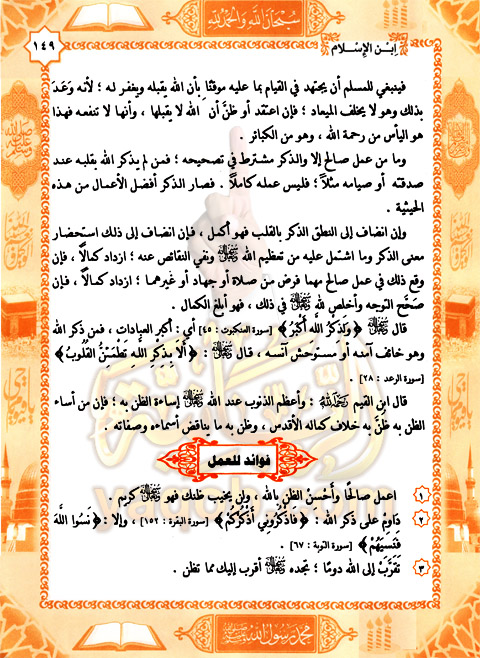 سبحان الله والحمد لله
ابن الإسلام
١٤٩
فينبغي للمسلم أن يجتهد في القيام بما عليه موقنًا بأن الله يقبله ويغفر له ؛ لأنه وَعَدَ
بذلك وهو لا يخلف الميعاد ؛ فإن اعتقد أو ظنَّ أن الله لا يقبلها ، وأنها لا تنفعه فهذا
هو اليأس من رحمة الله ، وهو من الكبائر .
وما من عمل صالح إلا والذكر مشترط في تصحيحه ؛ فمن لم يذكر الله بقلبه عند
صدقته أو صيامه مثلاً ؛ فليس عمله كاملاً . فصار الذكر أفضل الأعمال من هذه
الحيثية .
وإن انضاف إلى النطق الذكر بالقلب فهو أكمل ، فإن انضاف إلى ذلك استحضار
معنى الذكر وما اشتمل عليه من تعظيم الله ونفي النقائص عنه ؛ ازداد كمالاً ، فإن
وقع ذلك في عمل صالح مهما فرض من صلاة أو جهاد أو غيرهما ؛ ازداد كمالاً ، فإن
صَحَّح التوجه وأخلص لله في ذلك ، فهو أبلغ الكمال .
قال ﴿ وَلَذِكْرُ اللَّهِ أَكْبَرُ ﴾ [سورة العنكبوت : ٤٥] أي : أكبر العبادات ، فمن ذكر الله
وهو خائف آمنه أو مستوحش آنسه ، قال : ﴿ أَلَا بِذِكْرِ اللَّهِ تَطْمَئِنُّ الْقُلُوبُ ﴾
[سورة الرعد : ٢٨] .
قال ابن القيم : وأعظم الذنوب عند الله إساءة الظن به ؛ فإن من أساء
الظن به ظنَّ به خلاف كماله الأقدس ، وظن به ما يناقض أسماءه وصفاته .
فوائد للعمل
١ اعمل صالحًا وأَحْسِنْ الظن بالله ، ولن يخيب ظنك فهو كريم .
٢ دَاوِمْ على ذكر الله : ﴿ فَاذْكُرُونِي أَذْكُرْكُمْ ﴾ [سورة البقرة : ١٥٢] ، وإلا : ﴿ نَسُوا اللَّهَ
فَنَسِيَهُمْ ﴾ [سورة التوبة : ٦٧] .
٣ تَقَرَّبْ إلى الله دومًا ؛ تجده أقرب إليك مما تظن .
محمد رسول الله